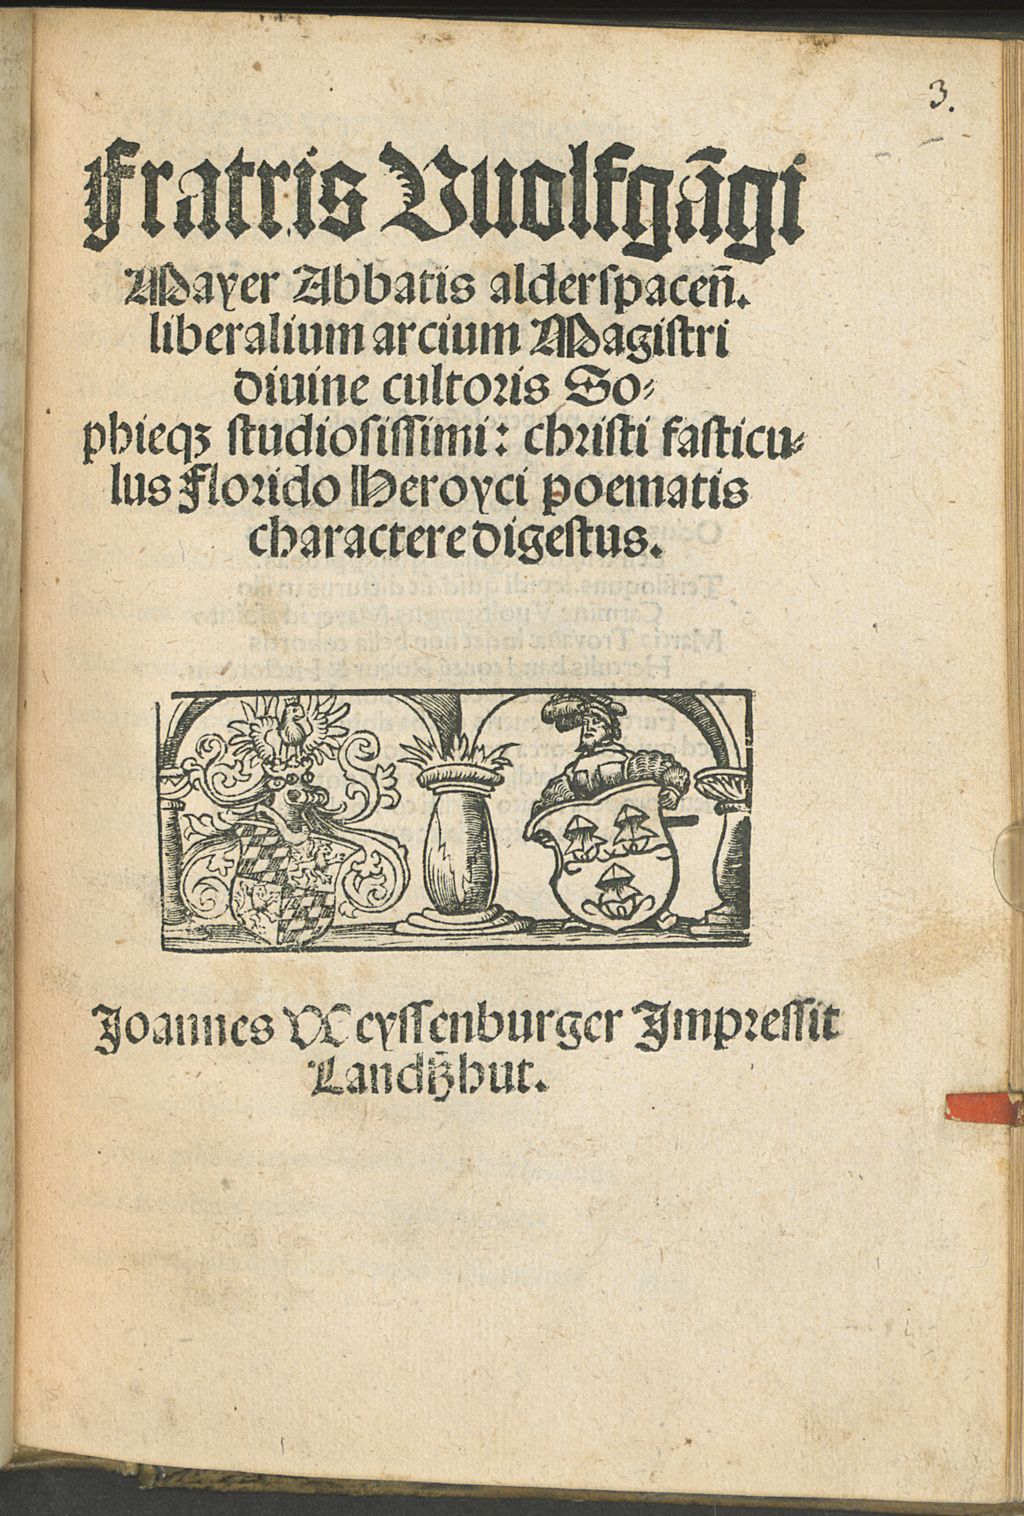 3.
Fratris Vuolfgãgi
Mayer Abbatis alderſpaceñ.
liberalium arcium Magiſtri
diuine cultoris So⸗
phieqꝫ ſtudioſiſſimi: chriſti faſticu⸗
lus Florido Heroyci poematis
charactere digeſtus.
Joannes Weyſſenburger Impreſſit
Landſzhut.